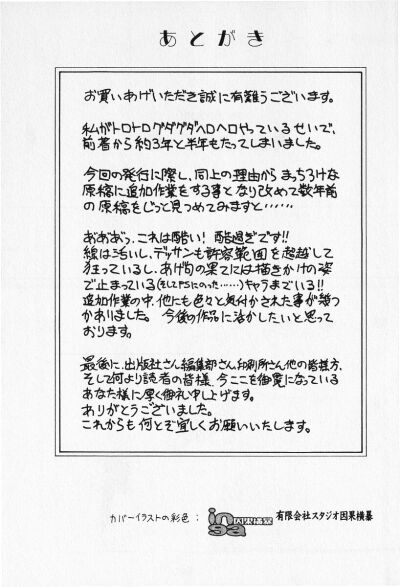 あとがき
お買いあげいただき誠に有難うございます。
私がトロトログダグダヘロヘロやっているせいで、
前著から約3年と半年もたってしまいました。
今回の発行に際し、同上の理由からまっちろけな
原稿に追加作業をする事となり改めて数年前
の原稿をじっと見つめてみますと……
あ゛あ゛あ゛っ、これは酷い! 酷過ぎです!!
線は汚いし、デッサンも許容範囲を超越して
狂っているし、あげ句の果てには描きかけの姿
で止まっている(そしてPSにのった……)キャラまでいる!!
追加作業の中、他にも色々と気付かされた事が幾つ
かありました。今後の作品に活かしたいと思って
おります。
最後に、出版社さん編集部さん、印刷所さん、他の皆様方、
そして何より読者の皆様、今ここを御覧になっている
あなた様に厚く御礼申し上げます。
ありがとうございました。
これからも何とぞ宜しくお願いいたします。
カバーイラストの彩色:
inga
有限会社スタジオ因果横暴